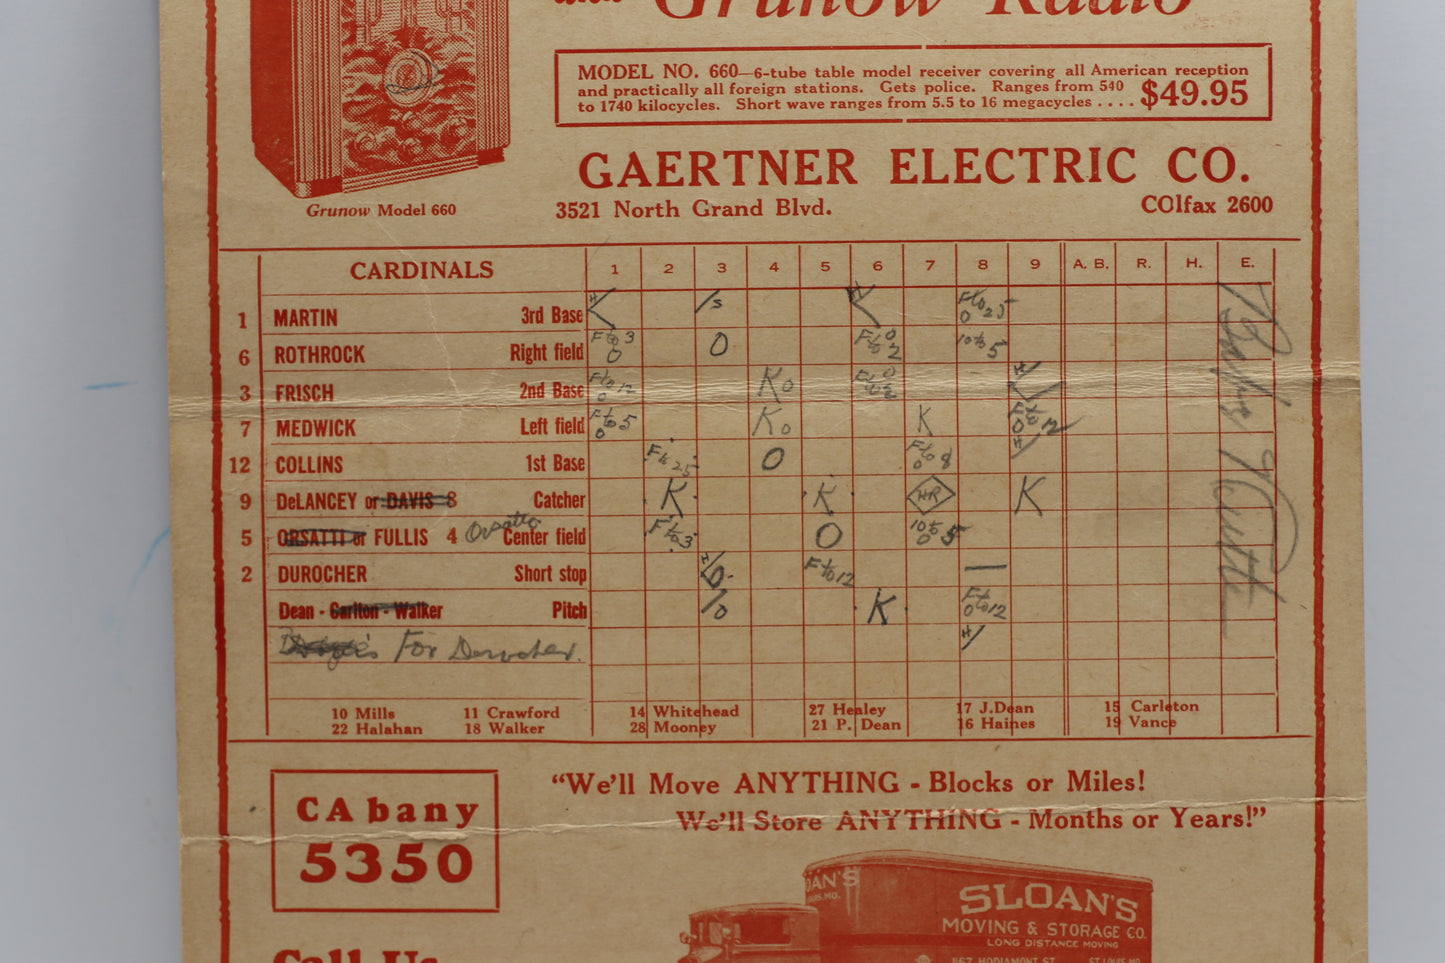 Grunow Radio
MODEL NO. 660—6-tube table model receiver covering all American reception
and practically all foreign stations. Gets police. Ranges from 540
to 1740 kilocycles. Short wave ranges from 5.5 to 16 megacycles . . . . $49.95
GAERTNER ELECTRIC CO.
Grunow Model 660
3521 North Grand Blvd. COlfax 2600
CARDINALS 1 2 3 4 5 6 7 8 9 A. B. R. H. E.
1 MARTIN 3rd Base H /s H F to 25 0
6 ROTHROCK Right field F to 3 0 0 F to 2 0 10 to 5
3 FRISCH 2nd Base F to 12 0 K0 H
7 MEDWICK Left field F to 5 0 K0 K F to 12 0
12 COLLINS 1st Base F to 25 0 F to 8 0 H
9 DeLANCEY or DAVIS 8 Catcher K K HR K
5 ORSATTI or FULLIS 4 Orsatti Center field F to 3 0 10 to 5 0
2 DUROCHER Short stop H F to 12 —
Dean - Carlton - Walker Pitch K F to 12 0
For Durocher. H
10 Mills 11 Crawford 14 Whitehead 27 Healey 17 J.Dean 15 Carleton
22 Halahan 18 Walker 28 Mooney 21 P. Dean 16 Haines 19 Vance
CAbany
5350
"We'll Move ANYTHING - Blocks or Miles!
We'll Store ANYTHING - Months or Years!"
SLOAN'S
MOVING & STORAGE CO.
LONG DISTANCE MOVING
1167 HODIAMONT ST. ST. LOUIS, MO.
Call Us